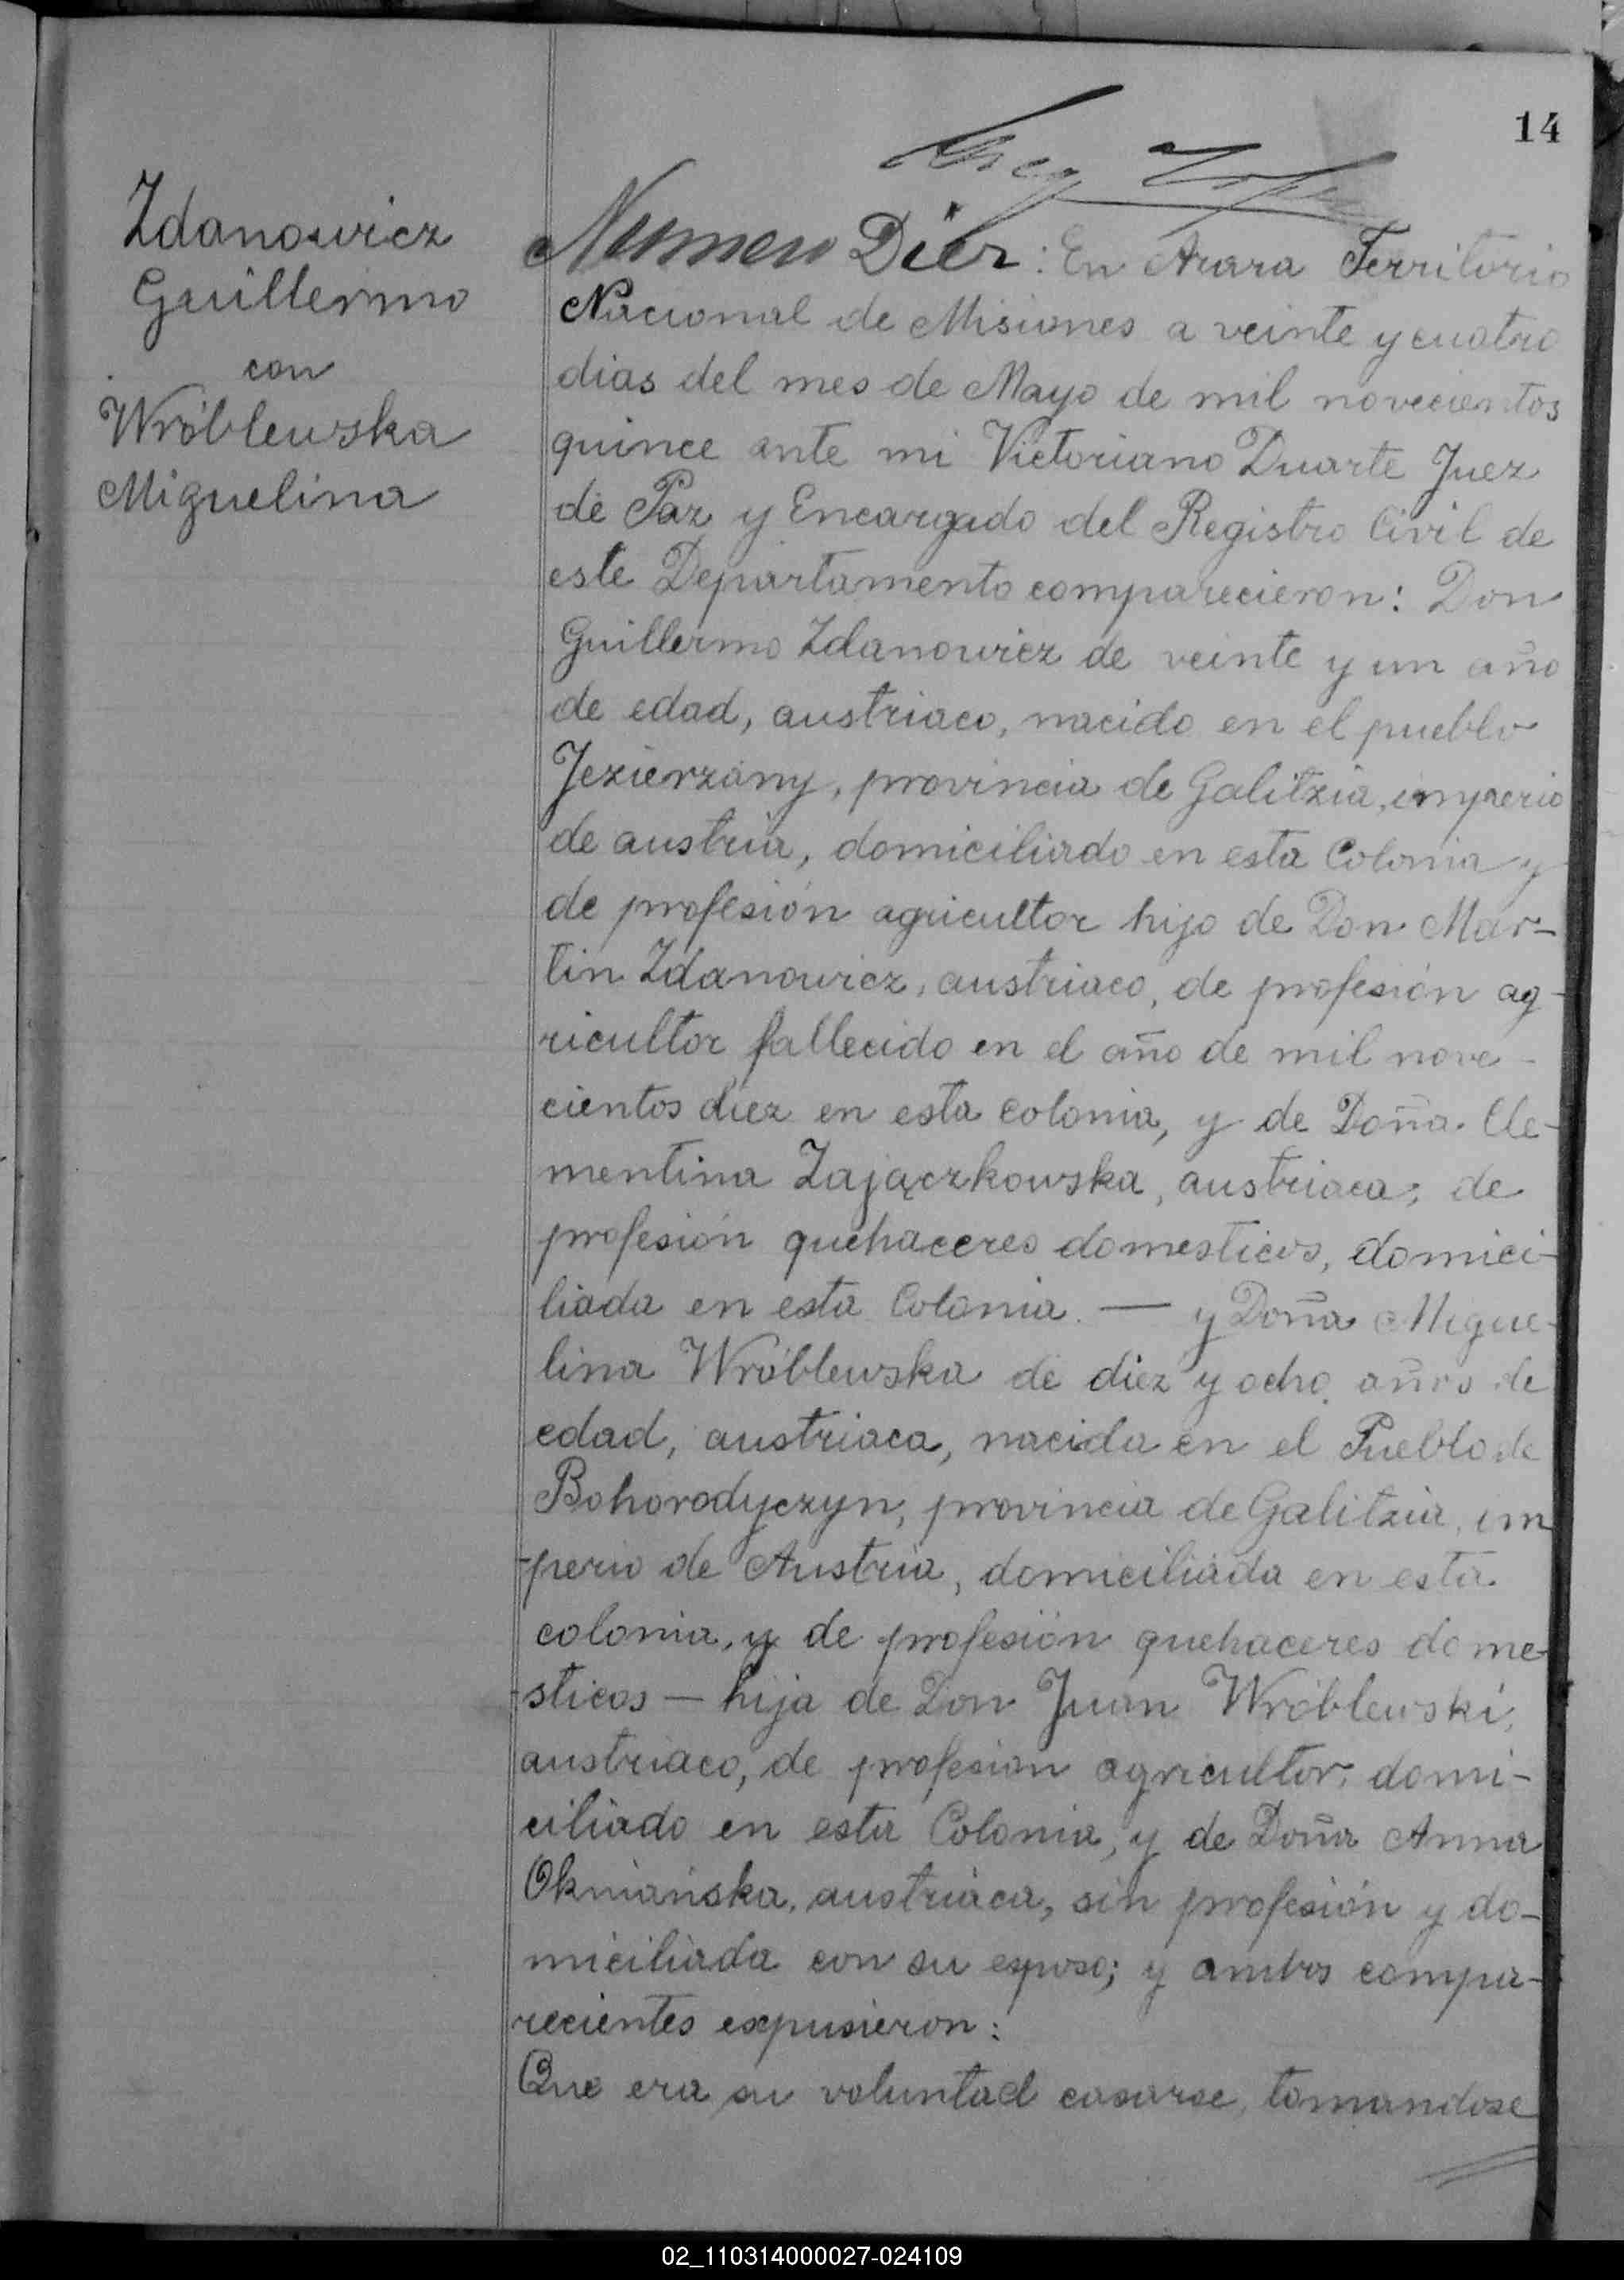 14
Zdanowicz
Guillermo
con
Wróblewska
Miguelina
Numero Diez: En Azara Territorio
Nacional de Misiones a veinte y cuatro
dias del mes de Mayo de mil novecientos
quince ante mi Victoriano Duarte Juez
de Paz y Encargado del Registro Civil de
este Departamento comparecieron: Don
Guillermo Zdanowicz de veinte y un año
de edad, austriaco, nacido en el pueblo
Jezierzany, provincia de Galitzia, imperio
de austria, domiciliado en esta Colonia y
de profesión agricultor hijo de Don Mar-
tin Zdanowicz, austriaco, de profesión ag-
ricultor fallecido en el año de mil nove-
cientos diez en esta colonia, y de Doña Cle-
mentina Zajączkowska, austriaca, de
profesión quehaceres domesticos, domici-
liada en esta Colonia. — y Doña Migue-
lina Wróblewska de diez y ocho años de
edad, austriaca, nacida en el Pueblo de
Bohorodyczyn, provincia de Galitzia, im
-perio de Austria, domiciliada en esta
colonia, y de profesión quehaceres dome-
-sticos — hija de Don Juan Wróblewski,
austriaco, de profesion agricultor, domi-
ciliado en esta Colonia, y de Doña Anna
Okniańska, austriaca, sin profesión y do-
miciliada con su esposo; y ambos compa-
recientes expusieron:
Que era su voluntad casarse, tomandose
02_110314000027-024109